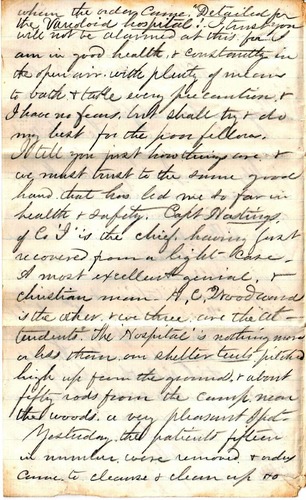 when the order came "Detailed for
the Varioloid hospital". I trust you
will not be alarmed at this for I
am in good health, & constantly in
the open air, with plenty of means
to bath & take every precaution, &
I have no fears, but shall try & do
my best for the poor fellows.
I'll tell you just how things are, &
we must trust to the same good
hand that has led me so far in
health & safety. Capt Hastings
of Co "I" is the chief, having just
recovered from a light case.
A most excellent genial, &
christian man. A. C. Woodward
is the other, & we three are the At-
tendents. The "Hospital" is nothing more
or less than our shelter tents pitched
high up from the ground, & about
fifty rods from the camp, near
the woods, a very pleasant spot.
Yesterday, the patients fifteen
in number, were removed & orders
came to cleanse & clean up so